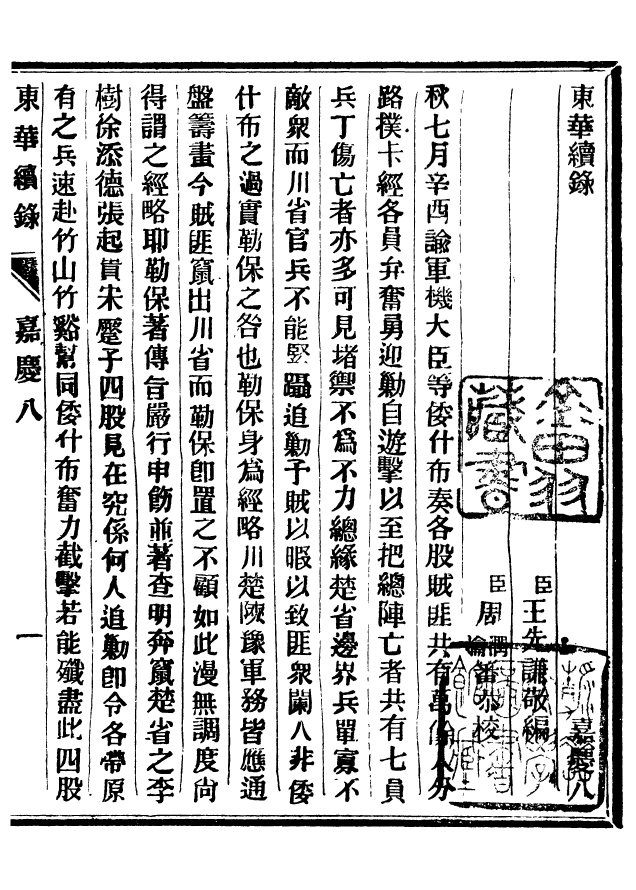 東華續錄
嘉慶八
臣王先謙敬編
臣周潤蕃瀹蕃恭校
秋七月辛酉諭軍機大臣等倭什布奏各股賊匪共有萬餘人分
路撲卡經各員弁奮勇迎勦自遊擊以至把總陣亡者共有七員
兵丁傷亡者亦多可見堵禦不爲不力總緣楚省邊界兵單寡不
敵衆而川省官兵不能緊躡追勦予賊以暇以致匪衆闌入非倭
什布之過實勒保之咎也勒保身爲經略川楚陝豫軍務皆應通
盤籌畫今賊匪竄出川省而勒保卽置之不顧如此漫無調度尙
得謂之經略耶勒保著傳旨嚴行申飭並著查明奔竄楚省之李
樹徐添德張起貴宋壓子四股見在究係何人追勦卽令各帶原
有之兵速赴竹山竹谿幫同倭什布奮力截擊若能殲盡此四股
東華續錄 嘉慶八 一